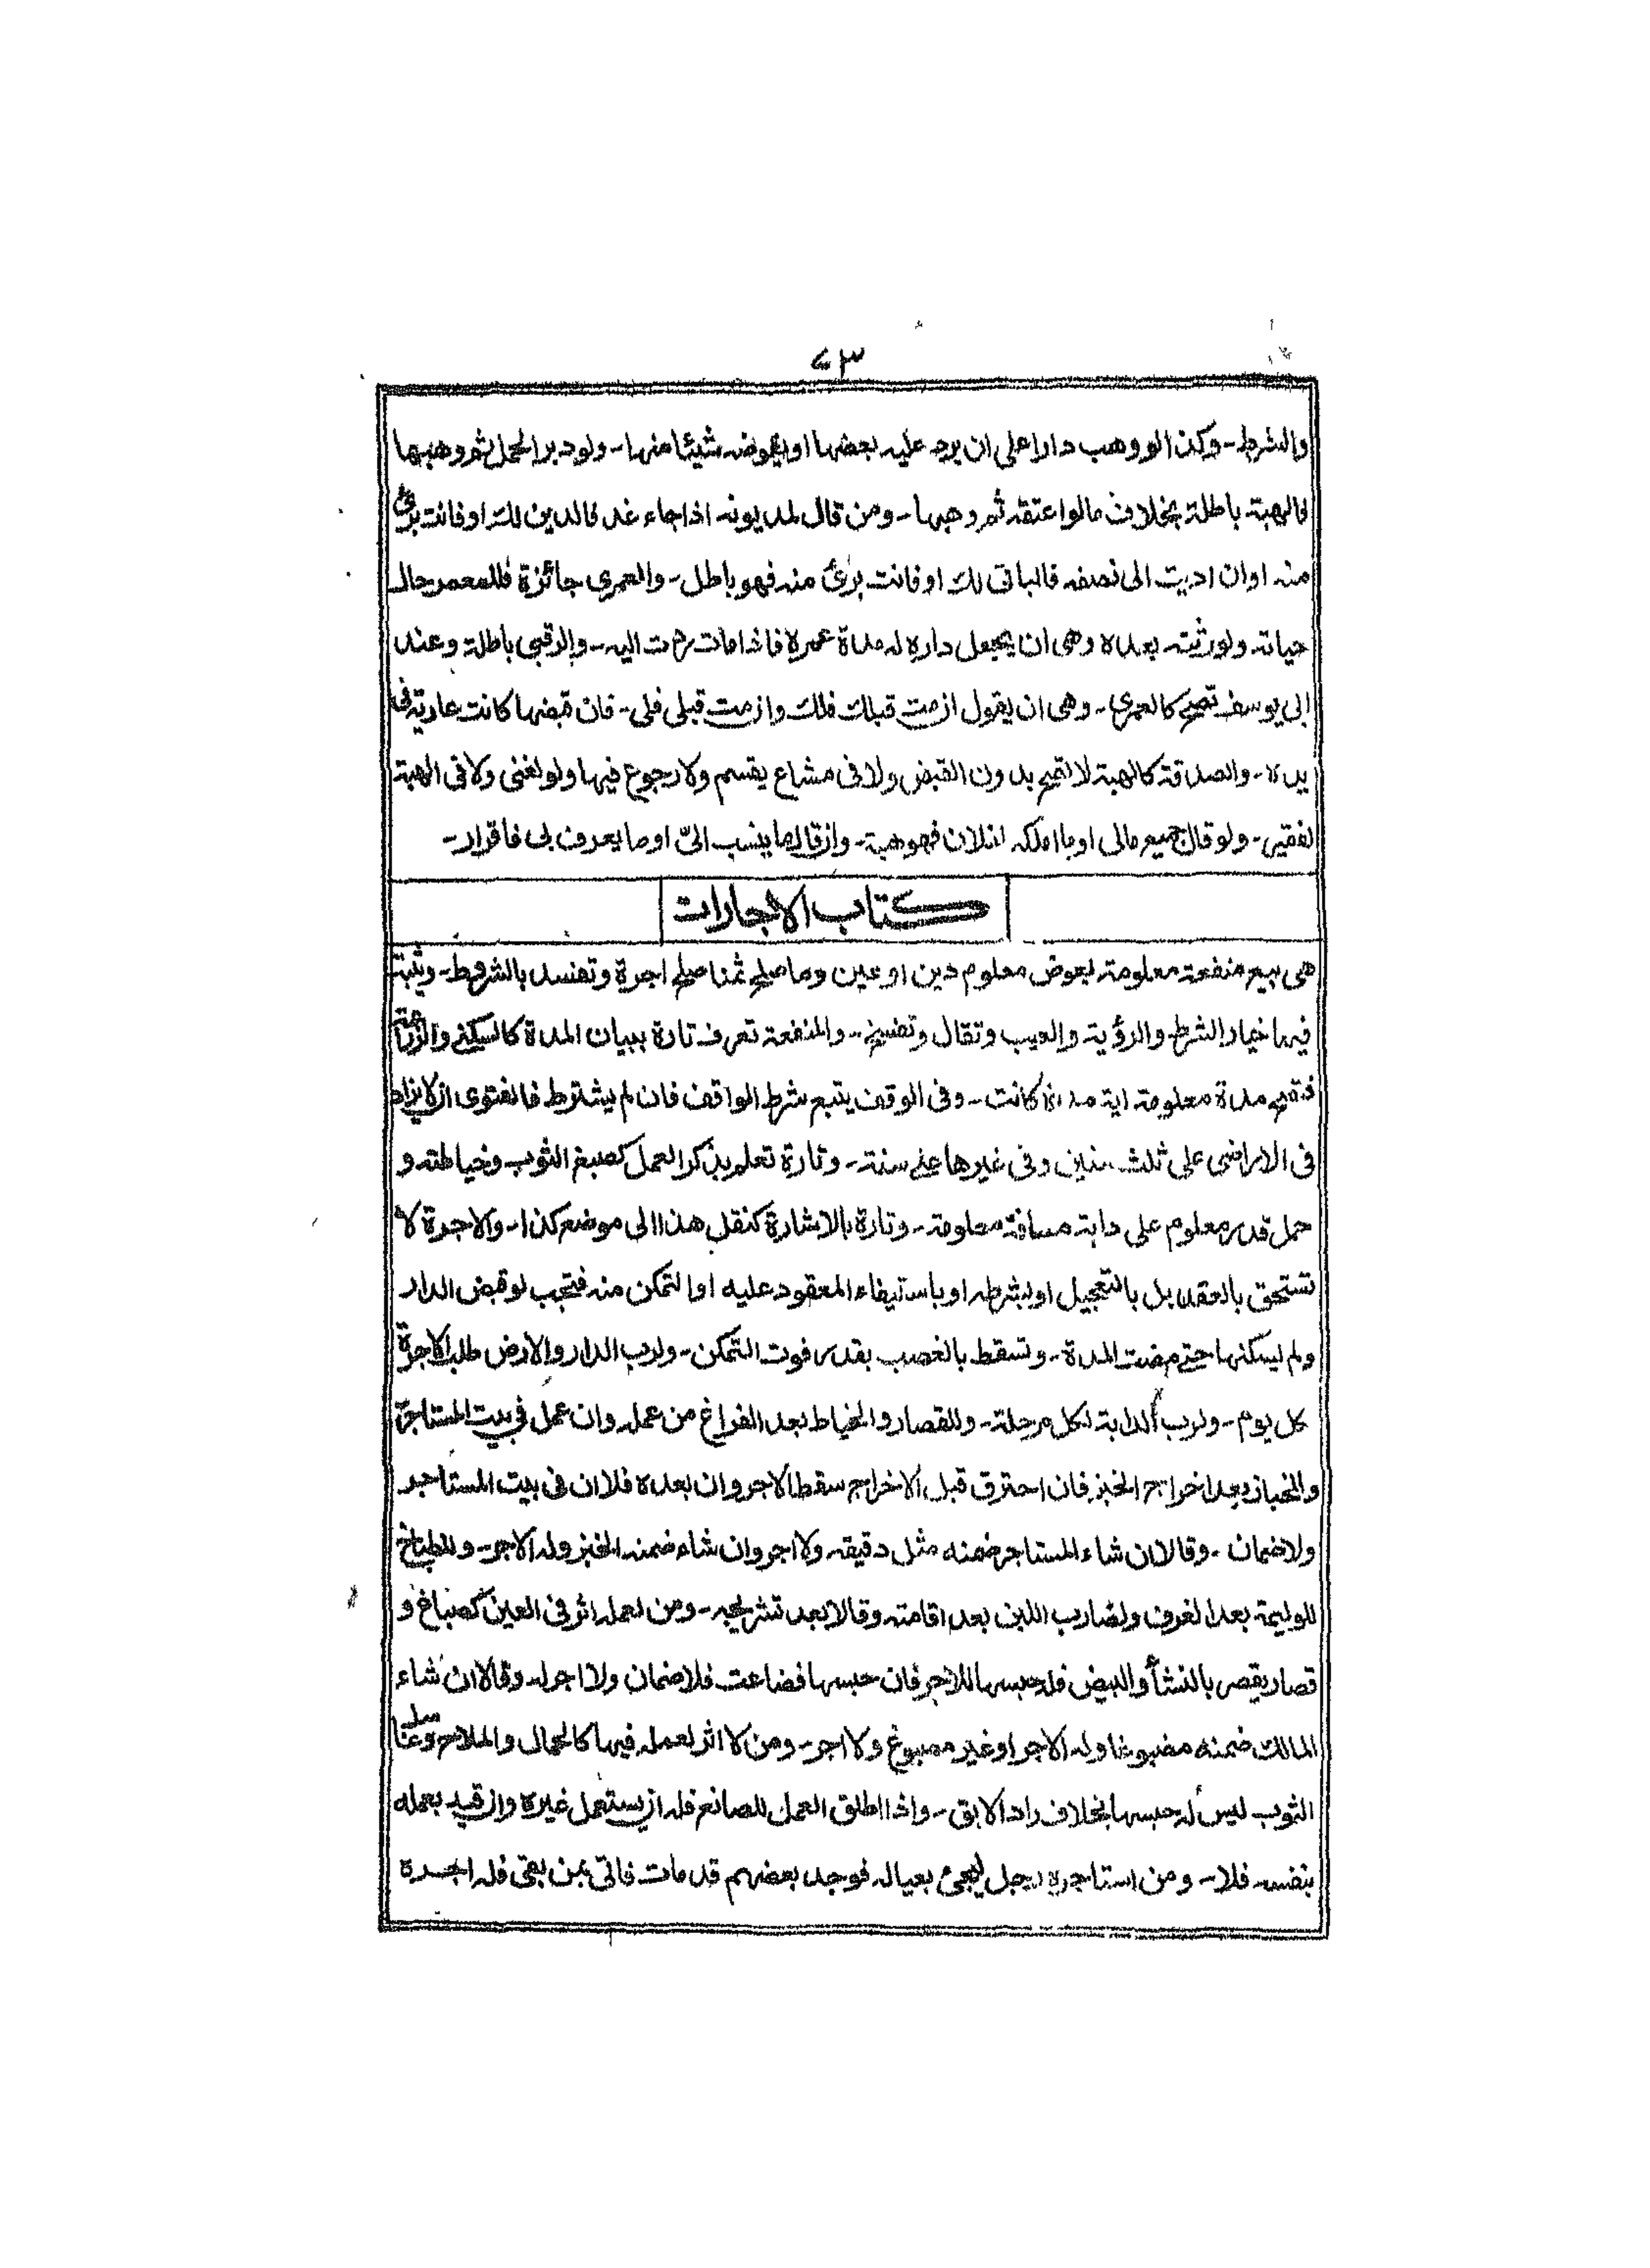 ٧٣
والشرط۔ وكذا لو وهب دارا على ان يرد عليه بعضها او يعوضه شيئا منها۔ ولو دبر الحمل ثم وهبها
فالهبة باطلة بخلاف ما لو اعتقه ثم وهبها۔ ومن قال لمديونه اذا جاء غد فالدين لك او فانت برئ
منه او ان اديت الى نصفه فالباقى لك او فانت برئ منه فهو باطل۔ والعمرى جائزة فللمعمر حال
حياته ولورثته بعده وهى ان يجعل داره له مدة عمره فاذا مات ردت اليه۔ والرقبى باطلة وعند
ابى يوسف تصح كالعمرى۔ وهى ان يقول ان مت قبلك فلك وان مت قبلى فلى۔ فان قبضها كانت عارية فى
يده۔ والصدقة كالهبة لا تصح بدون القبض ولا فى مشاع يقسم ولا رجوع فيها ولو لغنى ولا فى الهبة
لفقير۔ ولو قال جميع مالى او ما املكه لفلان فهو هبة۔ وان قال ما ينسب الىّ او ما يعرف لى فاقرار۔
كتاب الاجارات
هى بيع منفعة معلومة بعوض معلوم دين او عين وما صلح ثمنا صلح اجرة وتفسد بالشروط۔ ويثبت
فيها خيار الشرط والرؤية والعيب وتقال وتفسخ۔ والمنفعة تعرف تارة ببيان المدة كالسكنى والزراعة
فتصح مدة معلومة اية مدة كانت۔ وفى الوقف يتبع شرط الواقف فان لم يشترط فالفتوى ان لا يزاد
فى الاراضى على ثلث سنين وفى غيرها على سنة۔ وتارة تعلم بذكر العمل كصبغ الثوب وخياطته و
حمل قدر معلوم على دابة مسافة معلومة۔ وتارة بالاشارة كنقل هذا الى موضع كذا۔ والاجرة لا
تستحق بالعقد بل بالتعجيل او بشرطه او باستيفاء المعقود عليه او التمكن منه فتجب لو قبض الدار
ولم يسكنها حتى مضت المدة۔ وتسقط بالغصب بقدر فوت التمكن۔ ولرب الدار والارض طلب الاجرة
كل يوم۔ ولرب الدابة لكل مرحلة۔ وللقصار والخياط بعد الفراغ من عمله وان عمل فى بيت المستاجر
والخباز بعد اخراج الخبز فان احترق قبل الاخراج سقط الاجر وان بعده فلا ان فى بيت المستاجر
ولا ضمان۔ وقالا ان شاء المستاجر ضمنه مثل دقيقه ولا اجر وان شاء ضمنه الخبز وله الاجر۔ وللطباخ
للوليمة بعد الغرف ولضارب اللبن بعد اقامته وقالا بعد تشريجه۔ ومن لعمله اثر فى العين كصباغ و
قصار يقصر بالنشأ والبيض فله حبسها للاجر فان حبسها فضاعت فلا ضمان ولا اجر له۔ وقالا ان شاء
المالك ضمنه مصبوغا وله الاجر او غير مصبوغ ولا اجر۔ ومن لا اثر لعمله فيها كالحمال والملاح وغاسل
الثوب ليس له حبسها بخلاف راد الابق۔ واذا اطلق العمل للصانع فله ان يستعمل غيره وان قيد بعمله
بنفسه فلا۔ ومن استاجره رجل ليجئ بعياله فوجد بعضهم قد مات فاتى بمن بقى فله اجرة